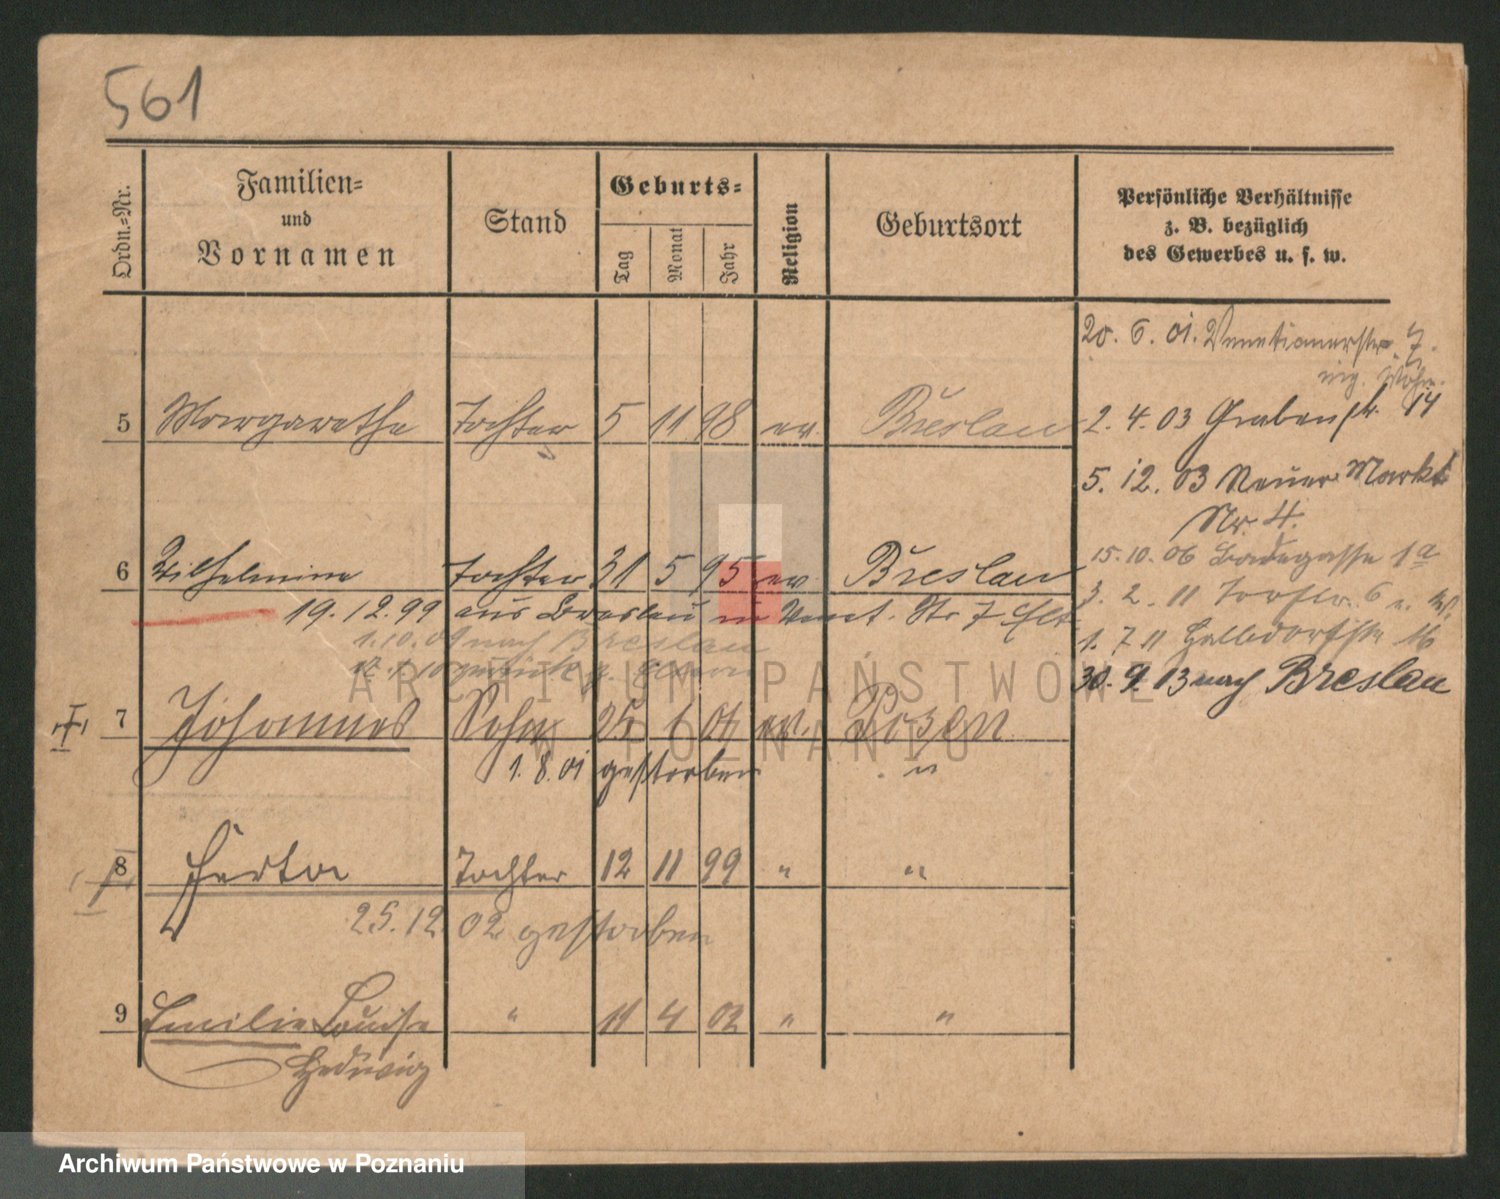 561
Ordn.-Nr.
Familien-
und
Vornamen
Stand
Geburts-
Tag
Monat
Jahr
Religion
Geburtsort
Persönliche Verhältnisse
z. B. bezüglich
des Gewerbes u. s. w.
20. 6. 01. Venetianerstr. 7.
Wohn.
5 Margarethe Tochter 5 11 98 ev. Breslau
2. 4. 03 Grabenstr. 14
5. 12. 03 Neuer Markt
Nr. 4.
6 Wilhelmine Tochter 31 5 95 ev. Breslau
15. 10. 06 Badegasse 1a
19. 12. 99 aus Breslau Venet. Str 7
3. 2. 11 Torstr. 6
1. 10. 09 nach Breslau
1. 7 11 Halbdorfstr 16
zurück
30. 9. 13 nach Breslau
7 Johannes Sohn 25 6 01 ev. Posen
1. 8. 01 gestorben "
8 Herta Tochter 12 11 99 " "
25. 12. 02 gestorben
9 Emilie Louise " 11 4 02 " "
Hedwig
ARCHIWUM PAŃSTWOWE
W POZNANIU
Archiwum Państwowe w Poznaniu